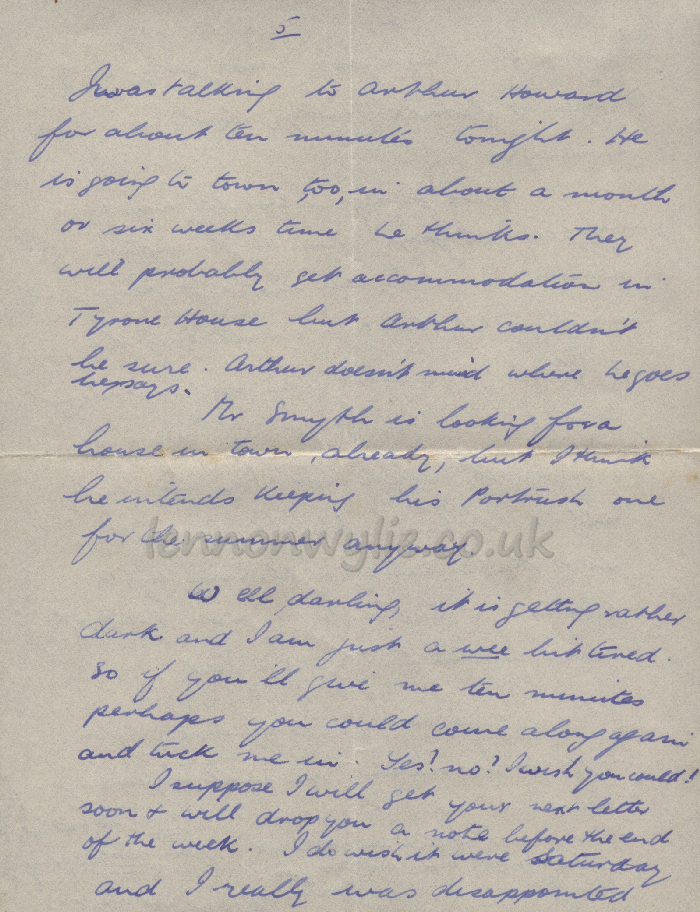 5
I was talking to Arthur Howard
for about ten minutes tonight. He
is going to town, too, in about a month
or six weeks time he thinks. They
will probably get accommodation in
Tyrone House but Arthur couldn't
be sure. Arthur doesn't mind where he goes
he says.
Mr Smyth is looking for a
house in town, already, but I think
he intends keeping his Portrush one
for the summer anyway.
lennonwylie.co.uk
Well, darling, it is getting rather
dark and I am just a wee bit tired.
So if you'll give me ten minutes
perhaps you could come along again
and tuck me in. Yes? no? I wish you could!
I suppose I will get your next letter
soon & will drop you a note before the end
of the week. I do wish it were Saturday
and I really was disappointed